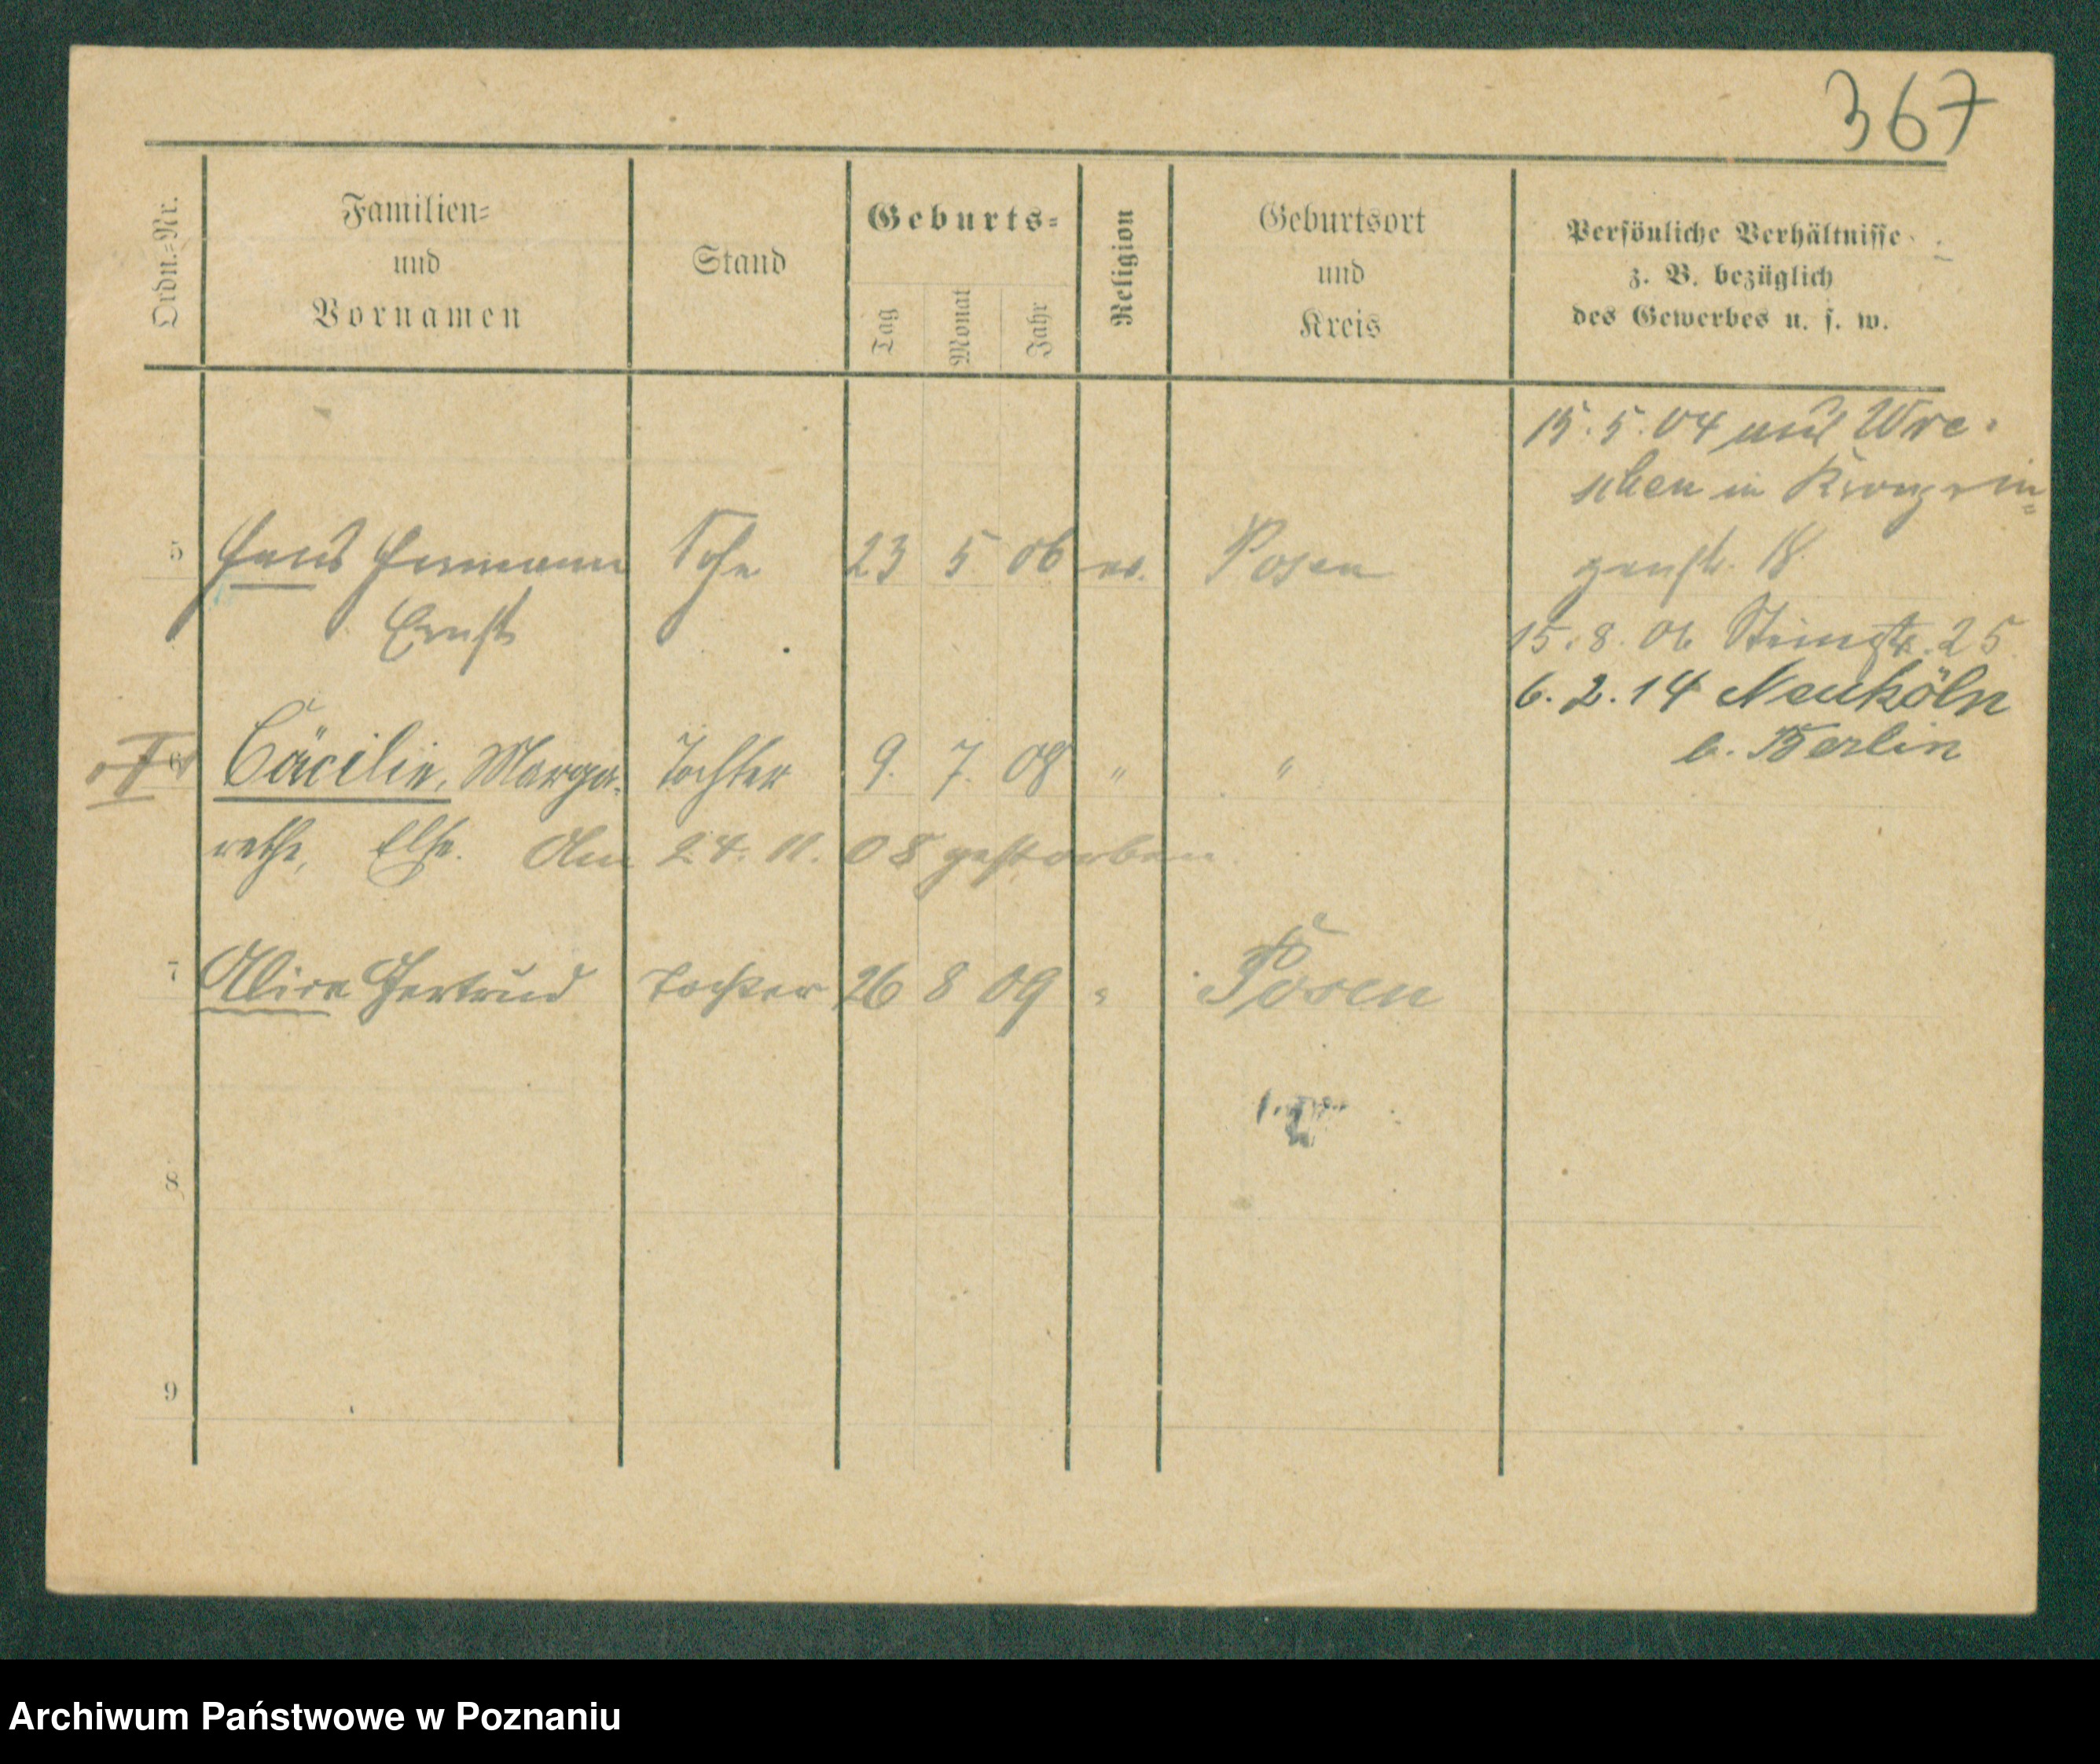 367
Ordn.-Nr.
Familien-
und
Vornamen
Stand
Geburts-
Tag
Monat
Jahr
Religion
Geburtsort
und
Kreis
Persönliche Verhältnisse
z. B. bezüglich
des Gewerbes u. s. w.
15.5.04 aus Wre-
schen in Kronprin=
zenstr. 18.
5 Hans Hermann Sohn 23 5 06 ev. Posen
Ernst
15.8.06 Steinstr. 25
6.2.14 Neuköln
b. Berlin
6 Cäcilie, Marga- Tochter 9. 7. 08 " "
rethe, Else. Am 24. 11. 08 gestorben
7 Alice Gertrud Tochter 26 8 09 " Posen
8
9
Archiwum Państwowe w Poznaniu